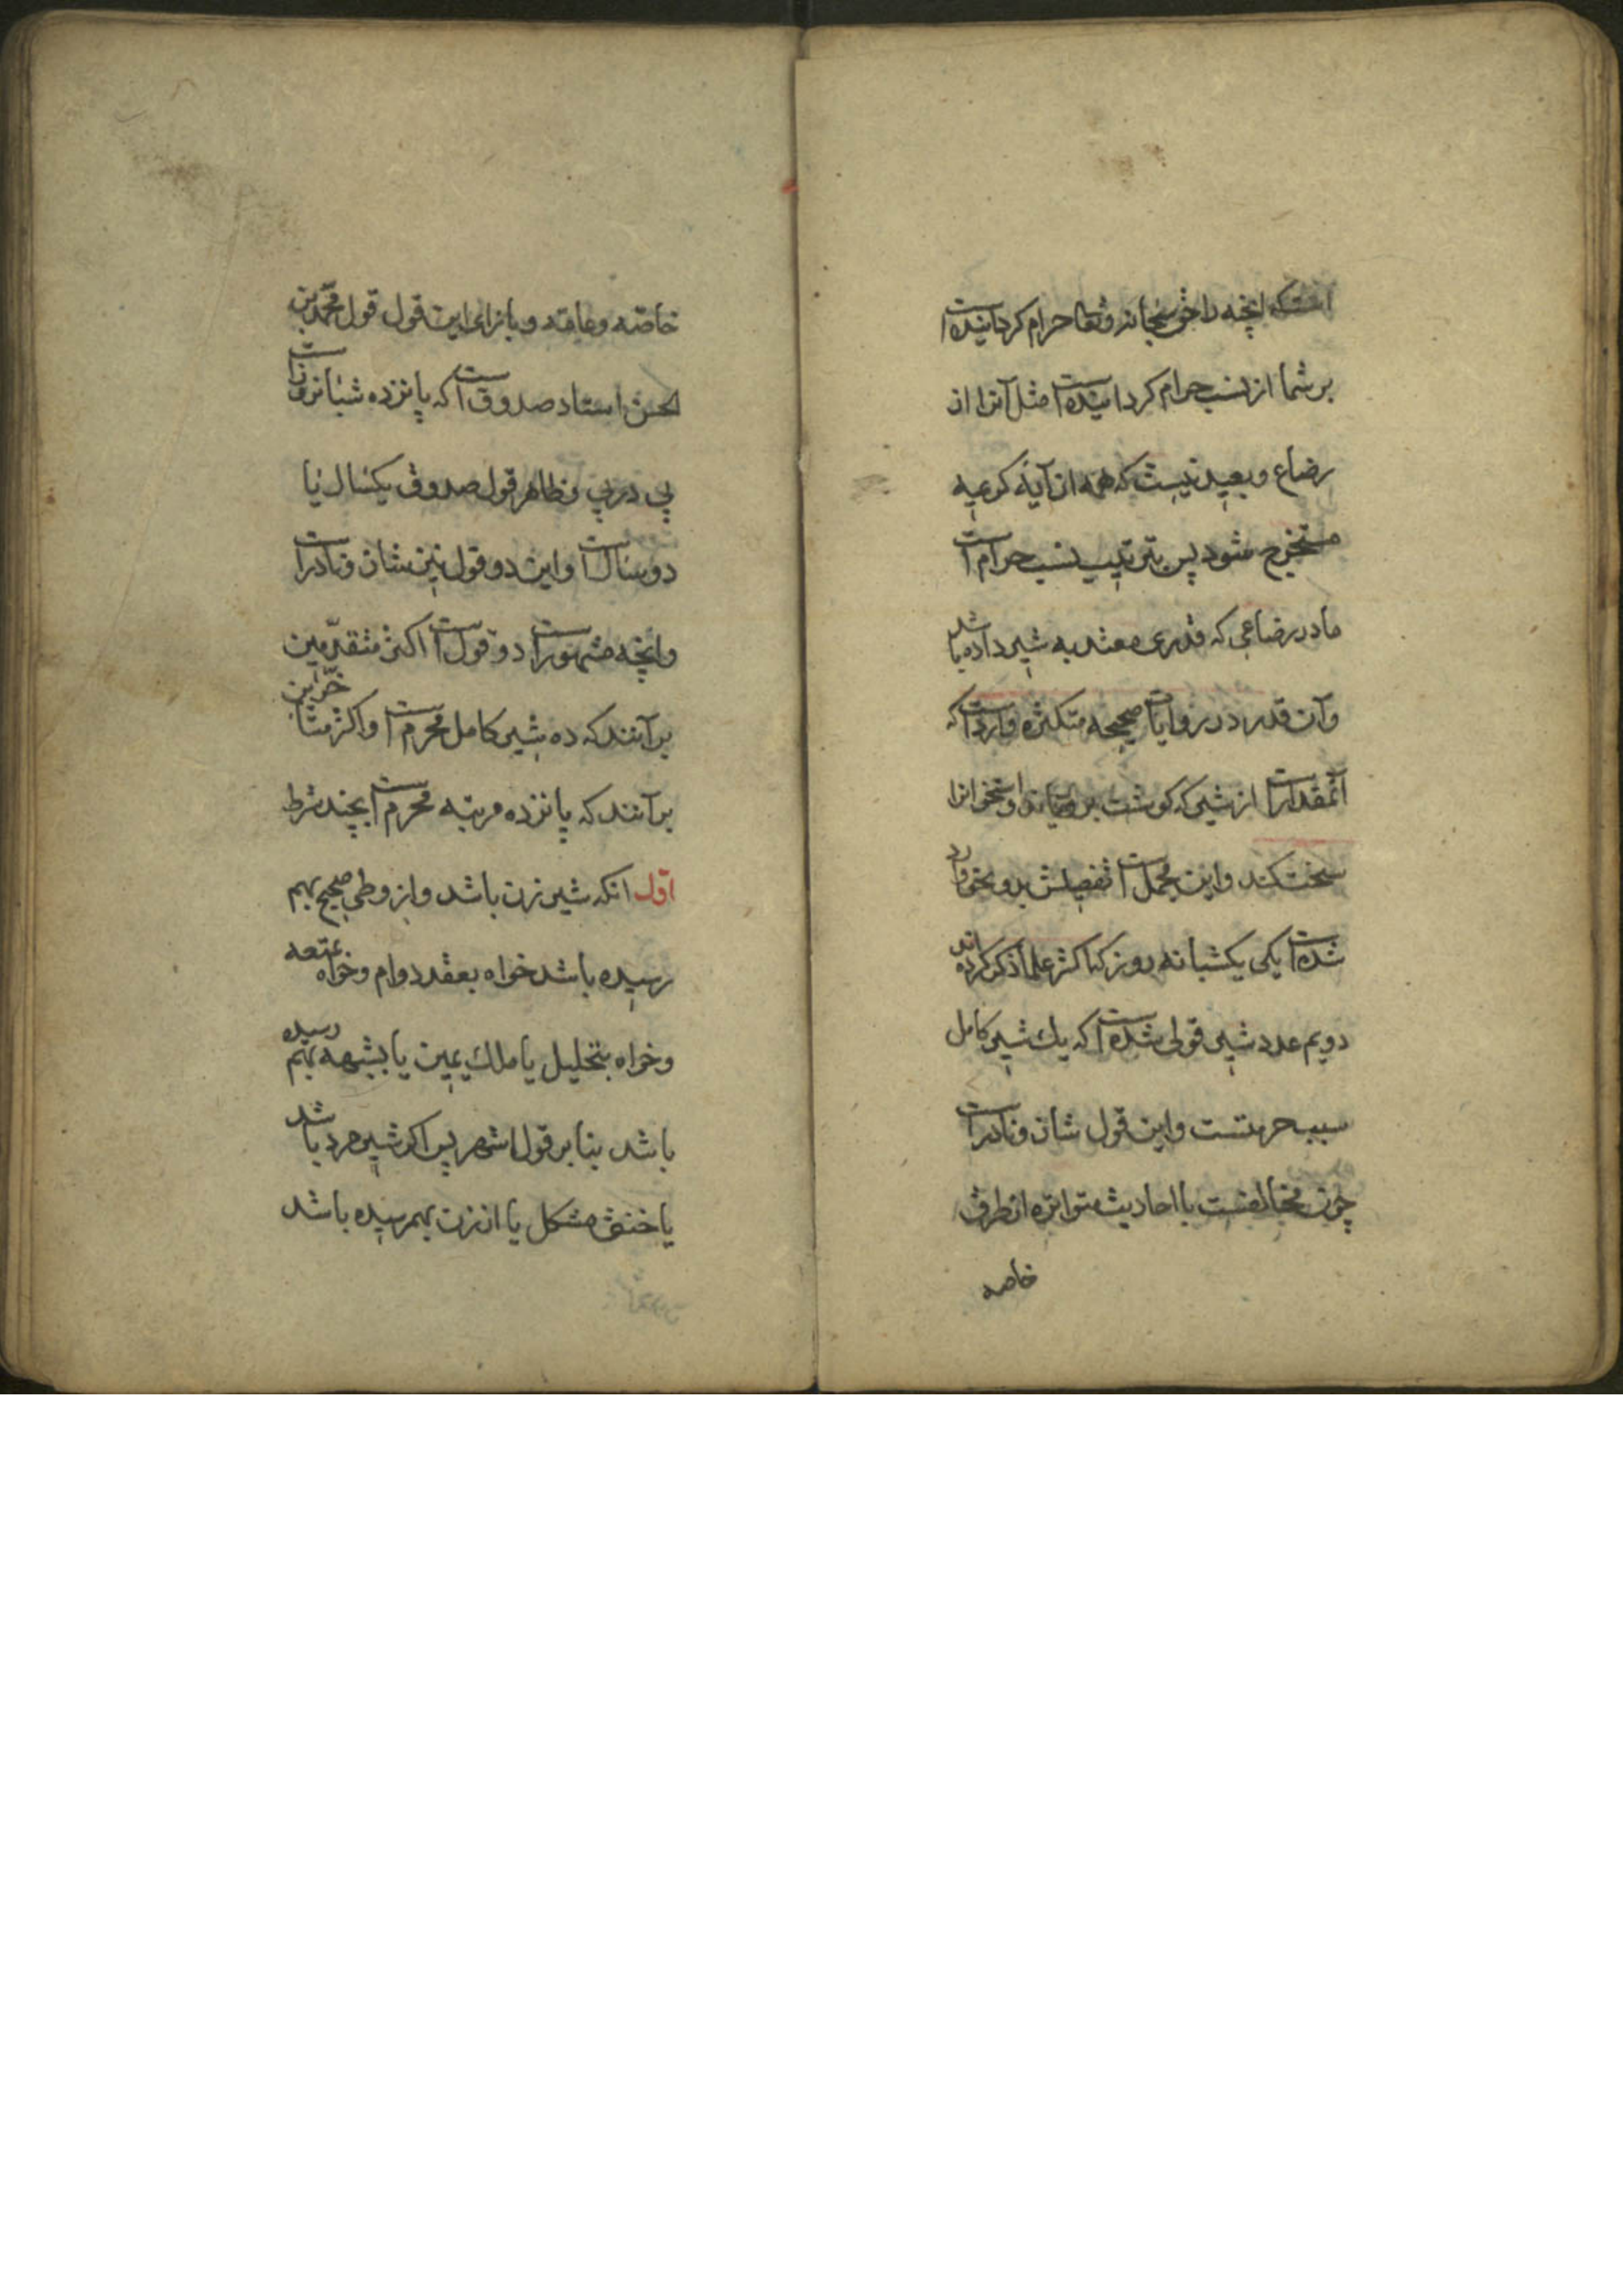 است که آنچه را حق سبحانه و تعالی حرام گردانیده است
بر شما از نسب حرام گردانیده است مثل آنرا از
رضاع و بعید نیست که همه از آیهٔ کریمه
مستخرج شود پس بترتیب نسب حرام است
مادر رضاعی که قدری معتد به شیر داده باشد
و آن قدر در روایات صحیحه متکثره وارد است که
آنمقدار است از شیر که گوشت برویاند و استخوانرا
سخت کند و این مجمل است تفصیلش بدو نحو وارد
شده است یکی یکشبانه روز که اکثر علما ذکر کرده اند
دویم عدد شیر قولی شده است که یک شیر کامل
سبب حرمتست و این قول شاذ و نادر است
چون مخالفست با احادیث متواتره از طرق
خاصه
خاصه و عامه و بازای این قول قول محمد بن
الحسن استاد صدوق است که پانزده شبانروز است
پی در پی و ظاهر قول صدوق یکسال یا
دو سال است و این دو قول نیز شاذ و نادر است
و آنچه مشهور است دو قول است اکثر متقدّمین
بر آنند که ده شیر کامل محرم است و اکثر متأخّرین
بر آنند که پانزده مرتبه محرم است بچند شرط
اوّل آنکه شیر زن باشد و از وطی صحیح بهم
رسیده باشد خواه بعقد دوام و خواه بمتعه
و خواه بتحلیل یا ملک یمین یا بشبهه بهم رسیده
باشد بنا بر قول اشهر پس اگر شیر مرد باشد
یا خنثی مشکل یا از زن بهمرسیده باشد